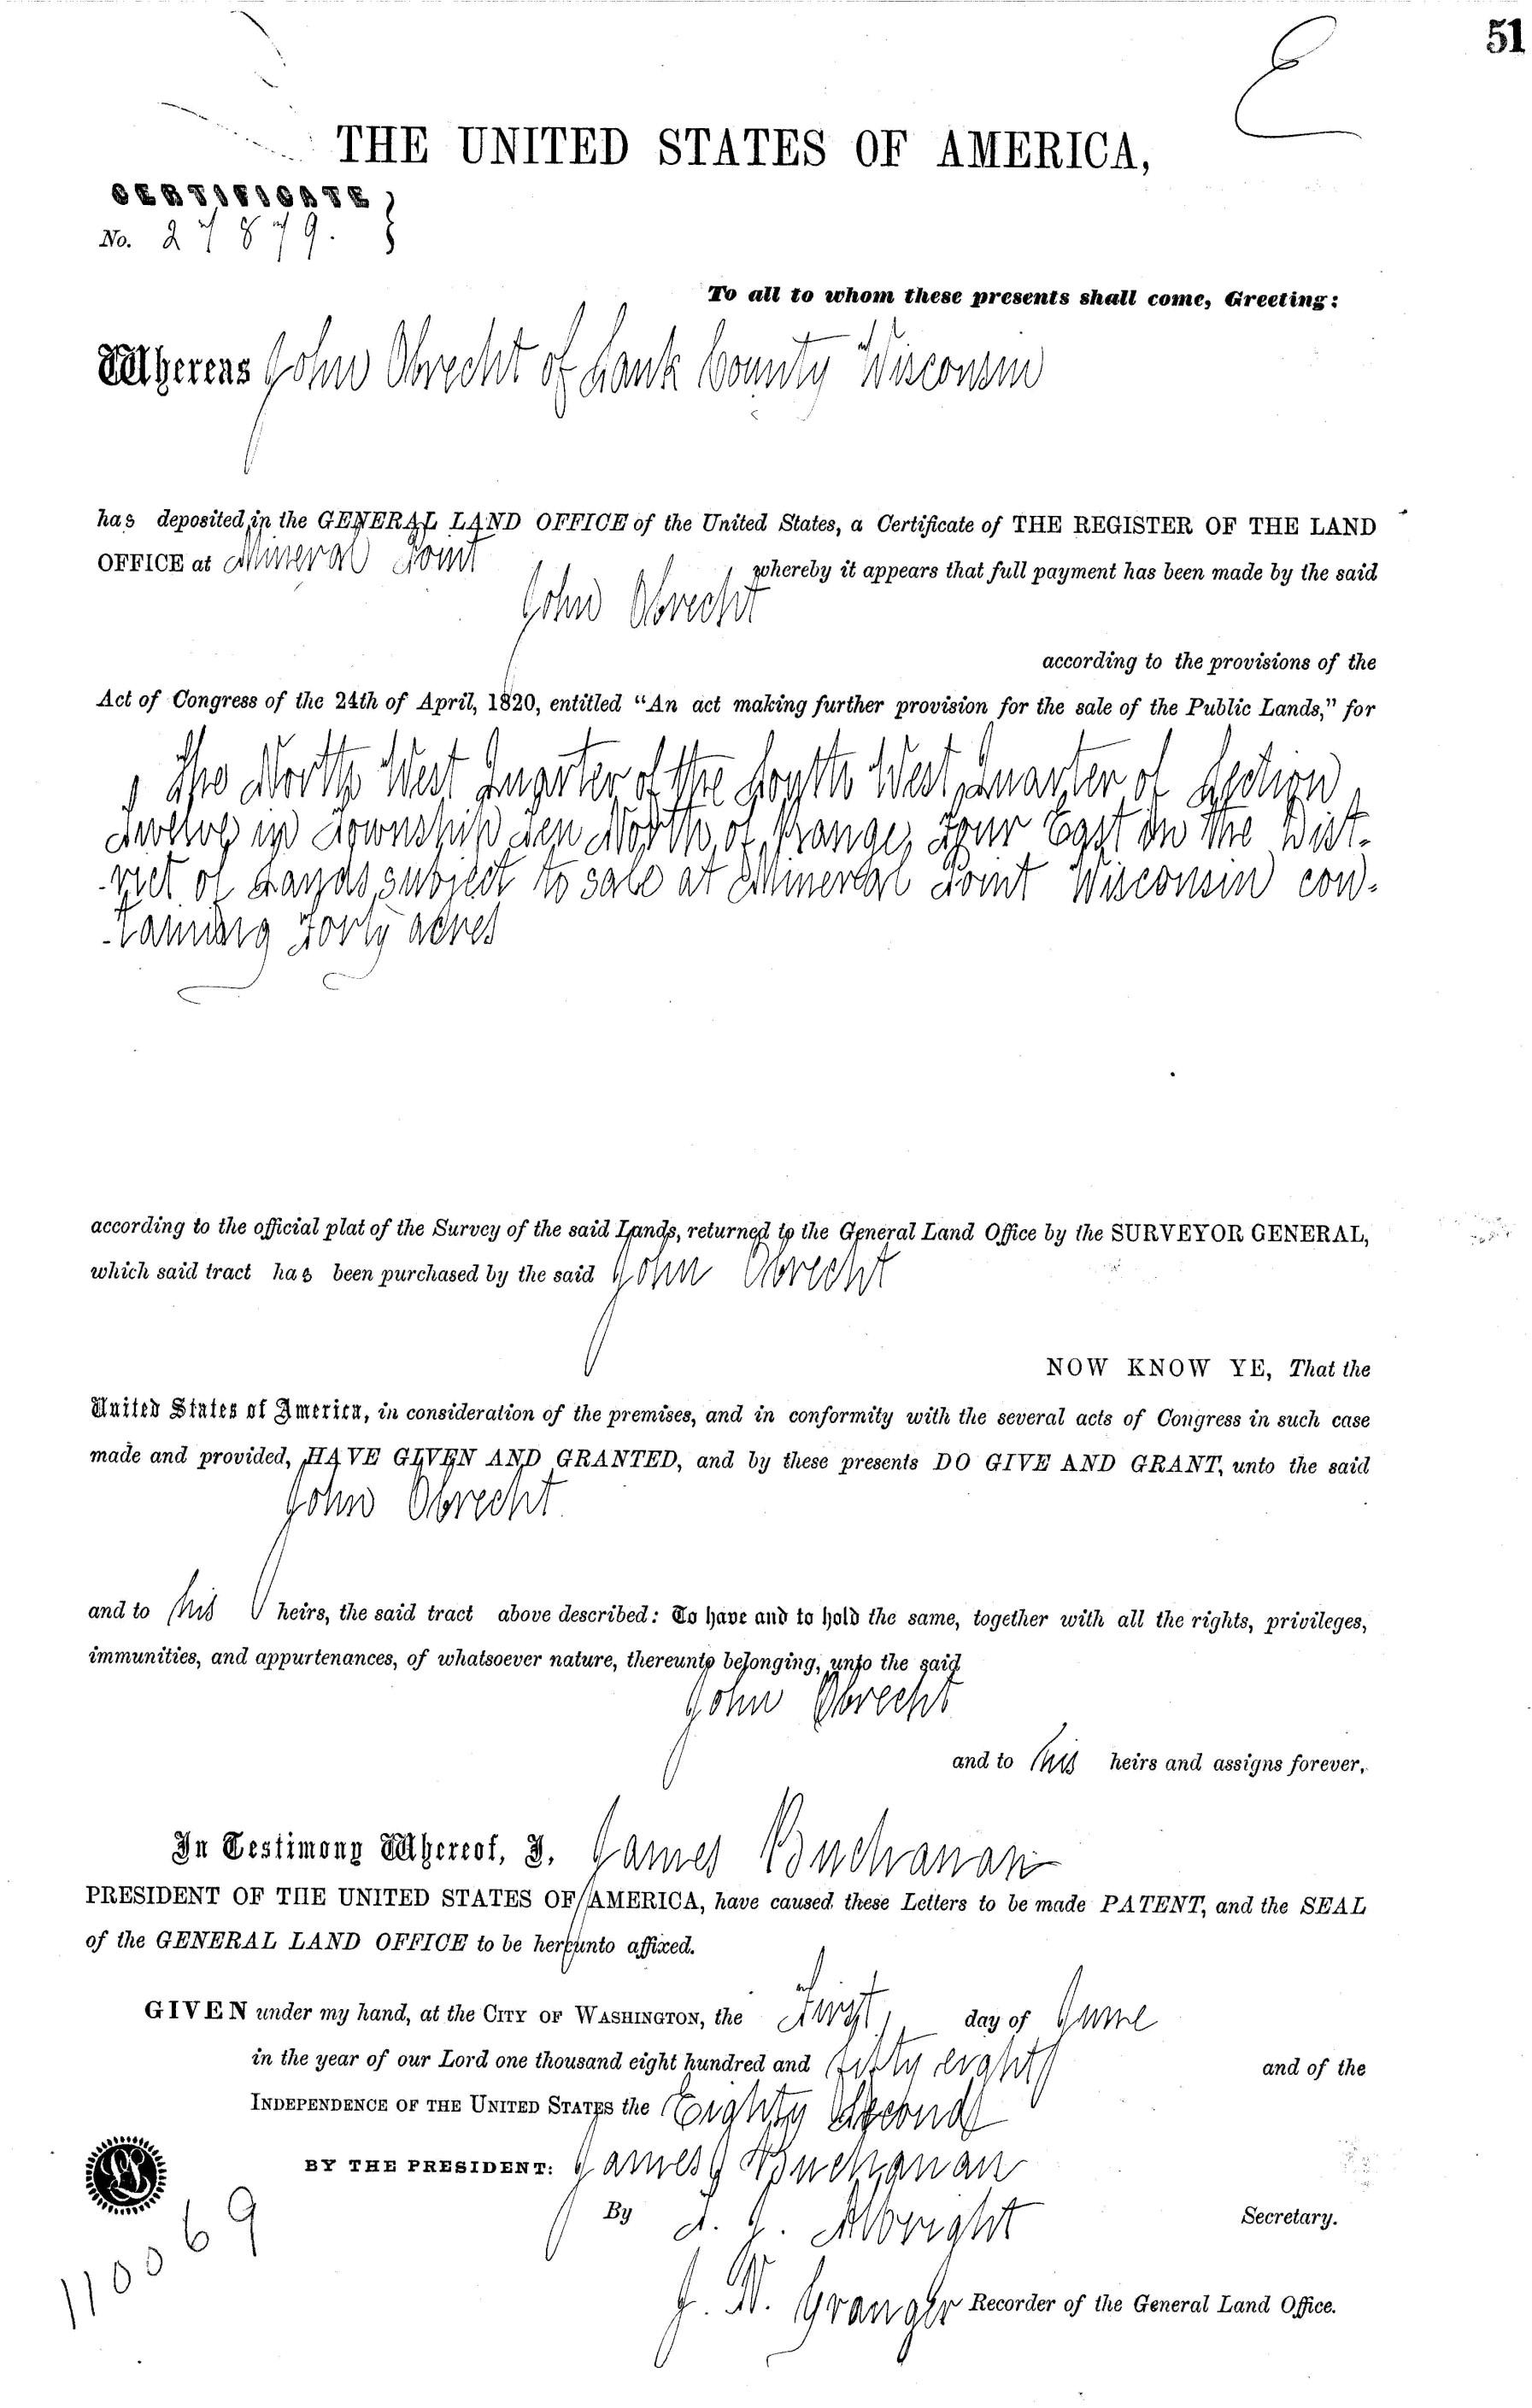 51
E
THE UNITED STATES OF AMERICA,
CERTIFICATE
No. 27879.
To all to whom these presents shall come, Greeting:
Whereas John Obrecht of Sauk County Wisconsin
has deposited in the GENERAL LAND OFFICE of the United States, a Certificate of THE REGISTER OF THE LAND
OFFICE at Mineral Point whereby it appears that full payment has been made by the said
John Obrecht
according to the provisions of the
Act of Congress of the 24th of April, 1820, entitled “An act making further provision for the sale of the Public Lands,” for
The North West Quarter of the South West Quarter of Section
Twelve in Township Ten North of Range Four East in the Dist-
-rict of Lands subject to sale at Mineral Point Wisconsin con-
-taining Forty acres
according to the official plat of the Survey of the said Lands, returned to the General Land Office by the SURVEYOR GENERAL,
which said tract has been purchased by the said John Obrecht
NOW KNOW YE, That the
United States of America, in consideration of the premises, and in conformity with the several acts of Congress in such case
made and provided, HAVE GIVEN AND GRANTED, and by these presents DO GIVE AND GRANT, unto the said
John Obrecht
and to his heirs, the said tract above described: To have and to hold the same, together with all the rights, privileges,
immunities, and appurtenances, of whatsoever nature, thereunto belonging, unto the said
John Obrecht
and to his heirs and assigns forever.
In Testimony Whereof, I, James Buchanan
PRESIDENT OF THE UNITED STATES OF AMERICA, have caused these Letters to be made PATENT, and the SEAL
of the GENERAL LAND OFFICE to be hereunto affixed.
GIVEN under my hand, at the CITY OF WASHINGTON, the First day of June
in the year of our Lord one thousand eight hundred and fifty eight and of the
INDEPENDENCE OF THE UNITED STATES the Eighty Second
BY THE PRESIDENT: James Buchanan
By J. Albright Secretary.
J. N. Granger Recorder of the General Land Office.
LS
110069